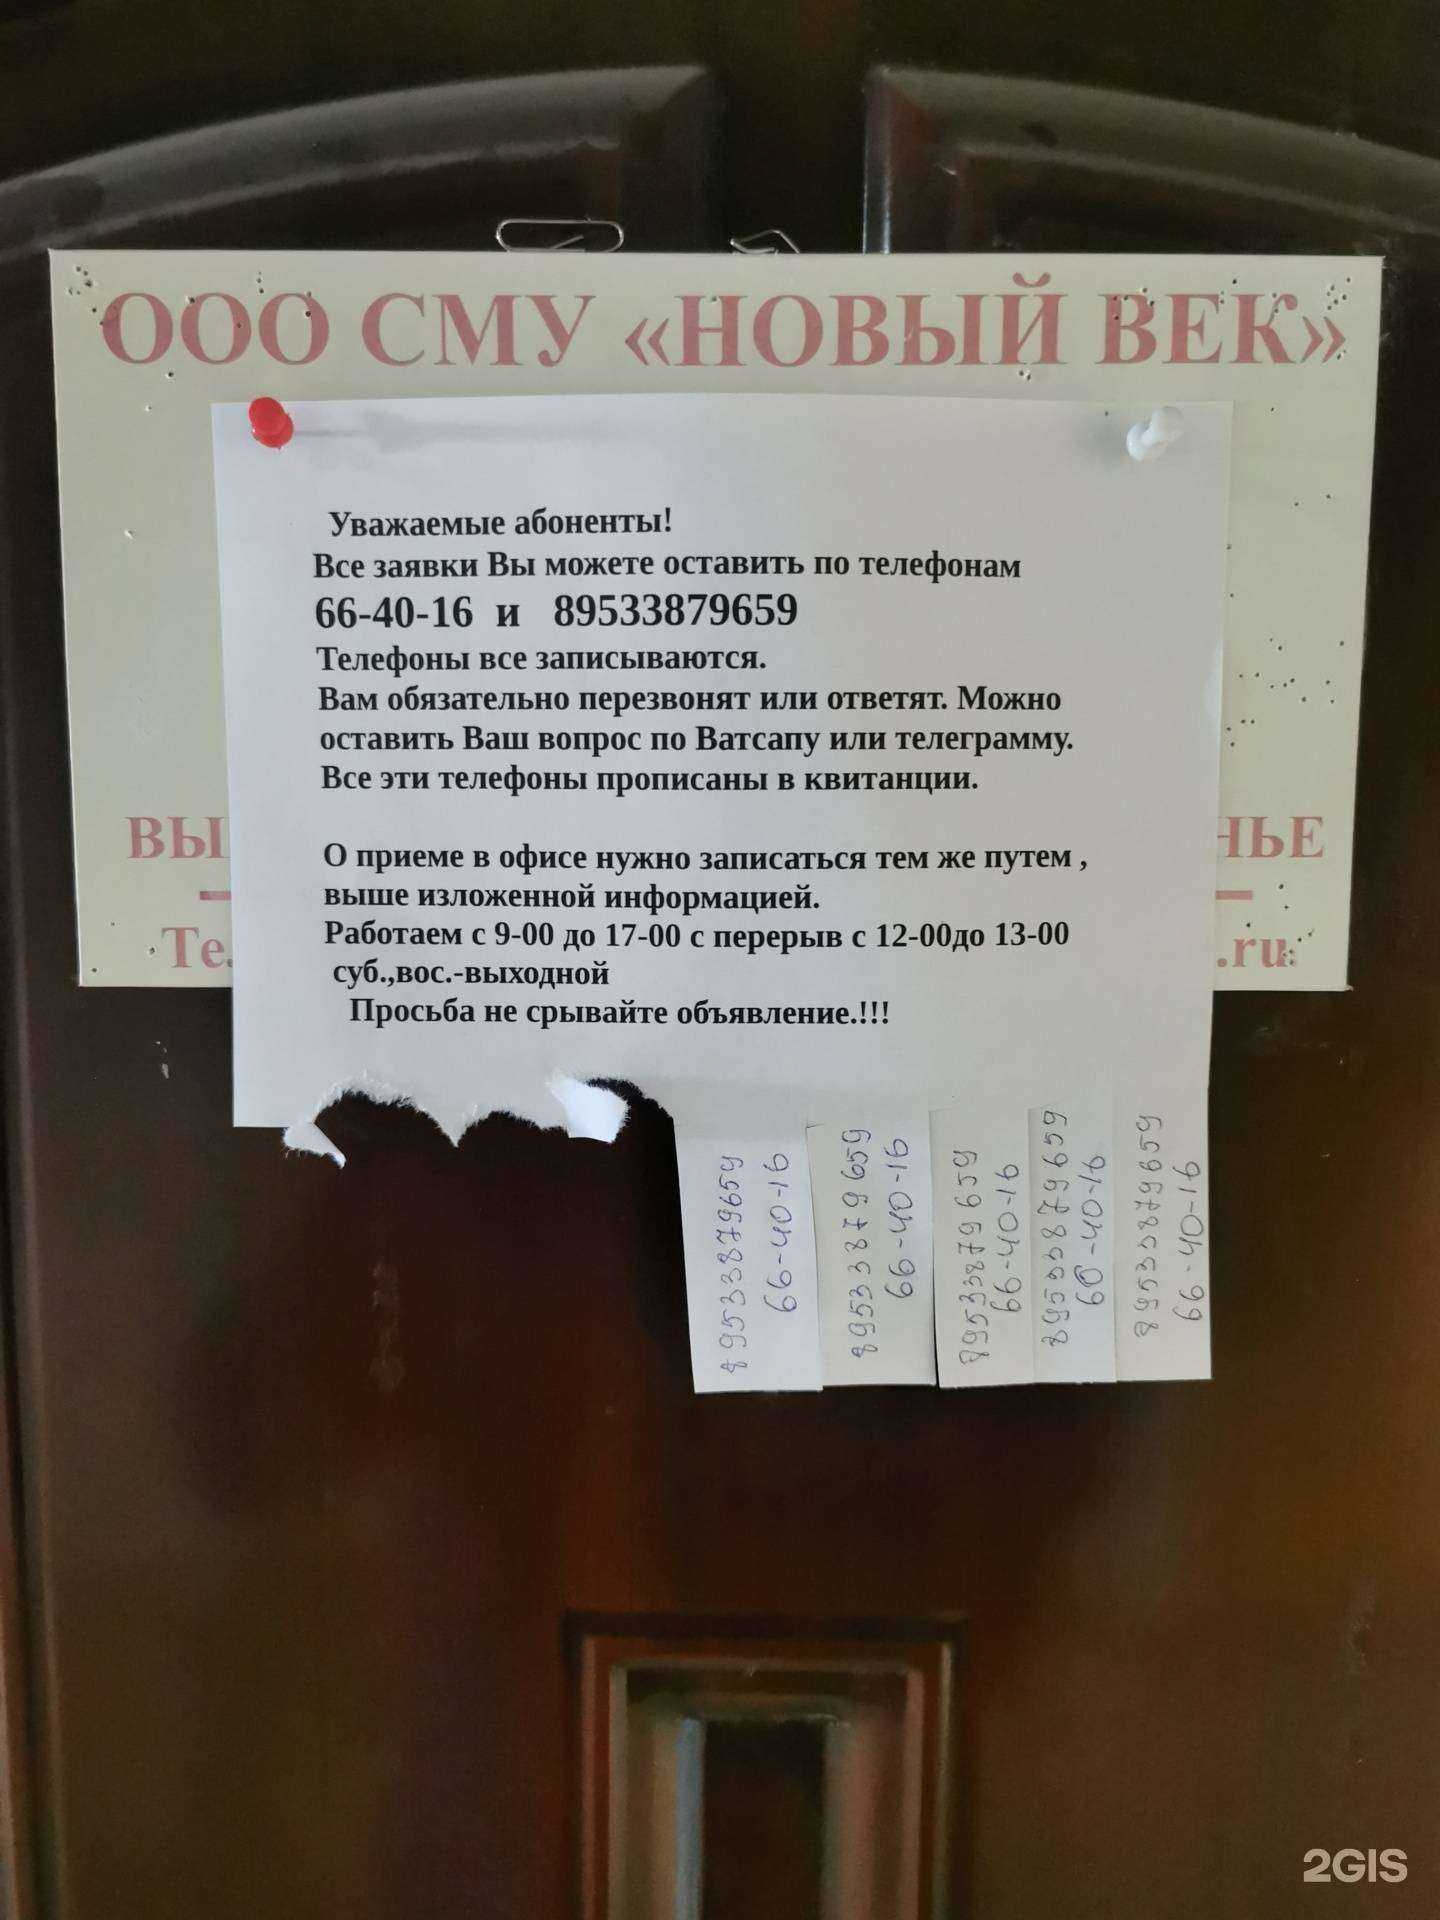 ООО СМУ «НОВЫЙ ВЕК»
Уважаемые абоненты!
Все заявки Вы можете оставить по телефонам
66-40-16 и 89533879659
Телефоны все записываются.
Вам обязательно перезвонят или ответят. Можно
оставить Ваш вопрос по Ватсапу или телеграмму.
Все эти телефоны прописаны в квитанции.
О приеме в офисе нужно записаться тем же путем ,
выше изложенной информацией.
Работаем с 9-00 до 17-00 с перерыв с 12-00до 13-00
суб.,вос.-выходной
Просьба не срывайте объявление.!!!
.ru
89533879659
66-40-16
89533879659
66-40-16
89533879659
66-40-16
89533879659
66-40-16
89533879659
66-40-16
2GIS